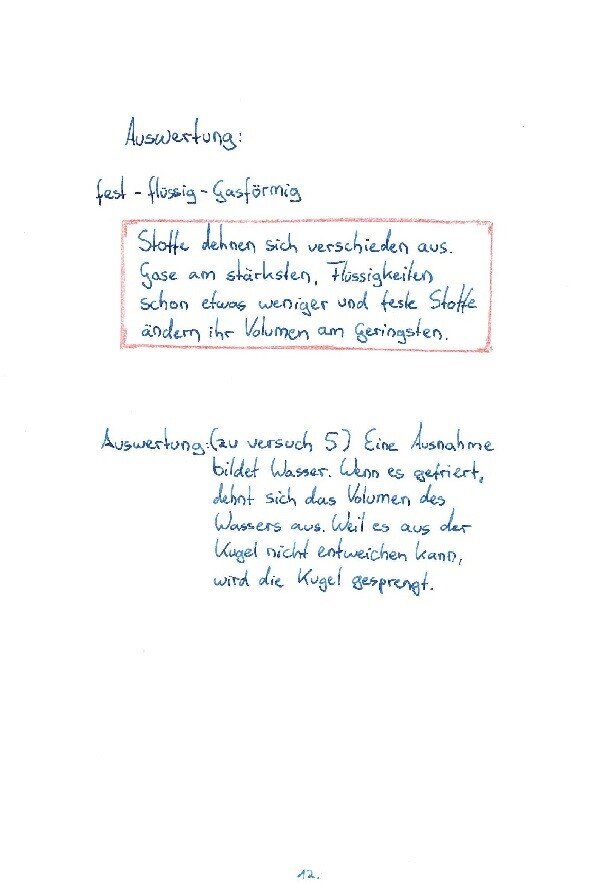 Auswertung:
fest - flüssig - Gasförmig
Stoffe dehnen sich verschieden aus.
Gase am stärksten, Flüssigkeiten
schon etwas weniger und feste Stoffe
ändern ihr Volumen am Geringsten.
Auswertung: (zu versuch 5) Eine Ausnahme
bildet Wasser. Wenn es gefriert,
dehnt sich das Volumen des
Wassers aus. Weil es aus der
Kugel nicht entweichen kann,
wird die Kugel gesprengt.
12.